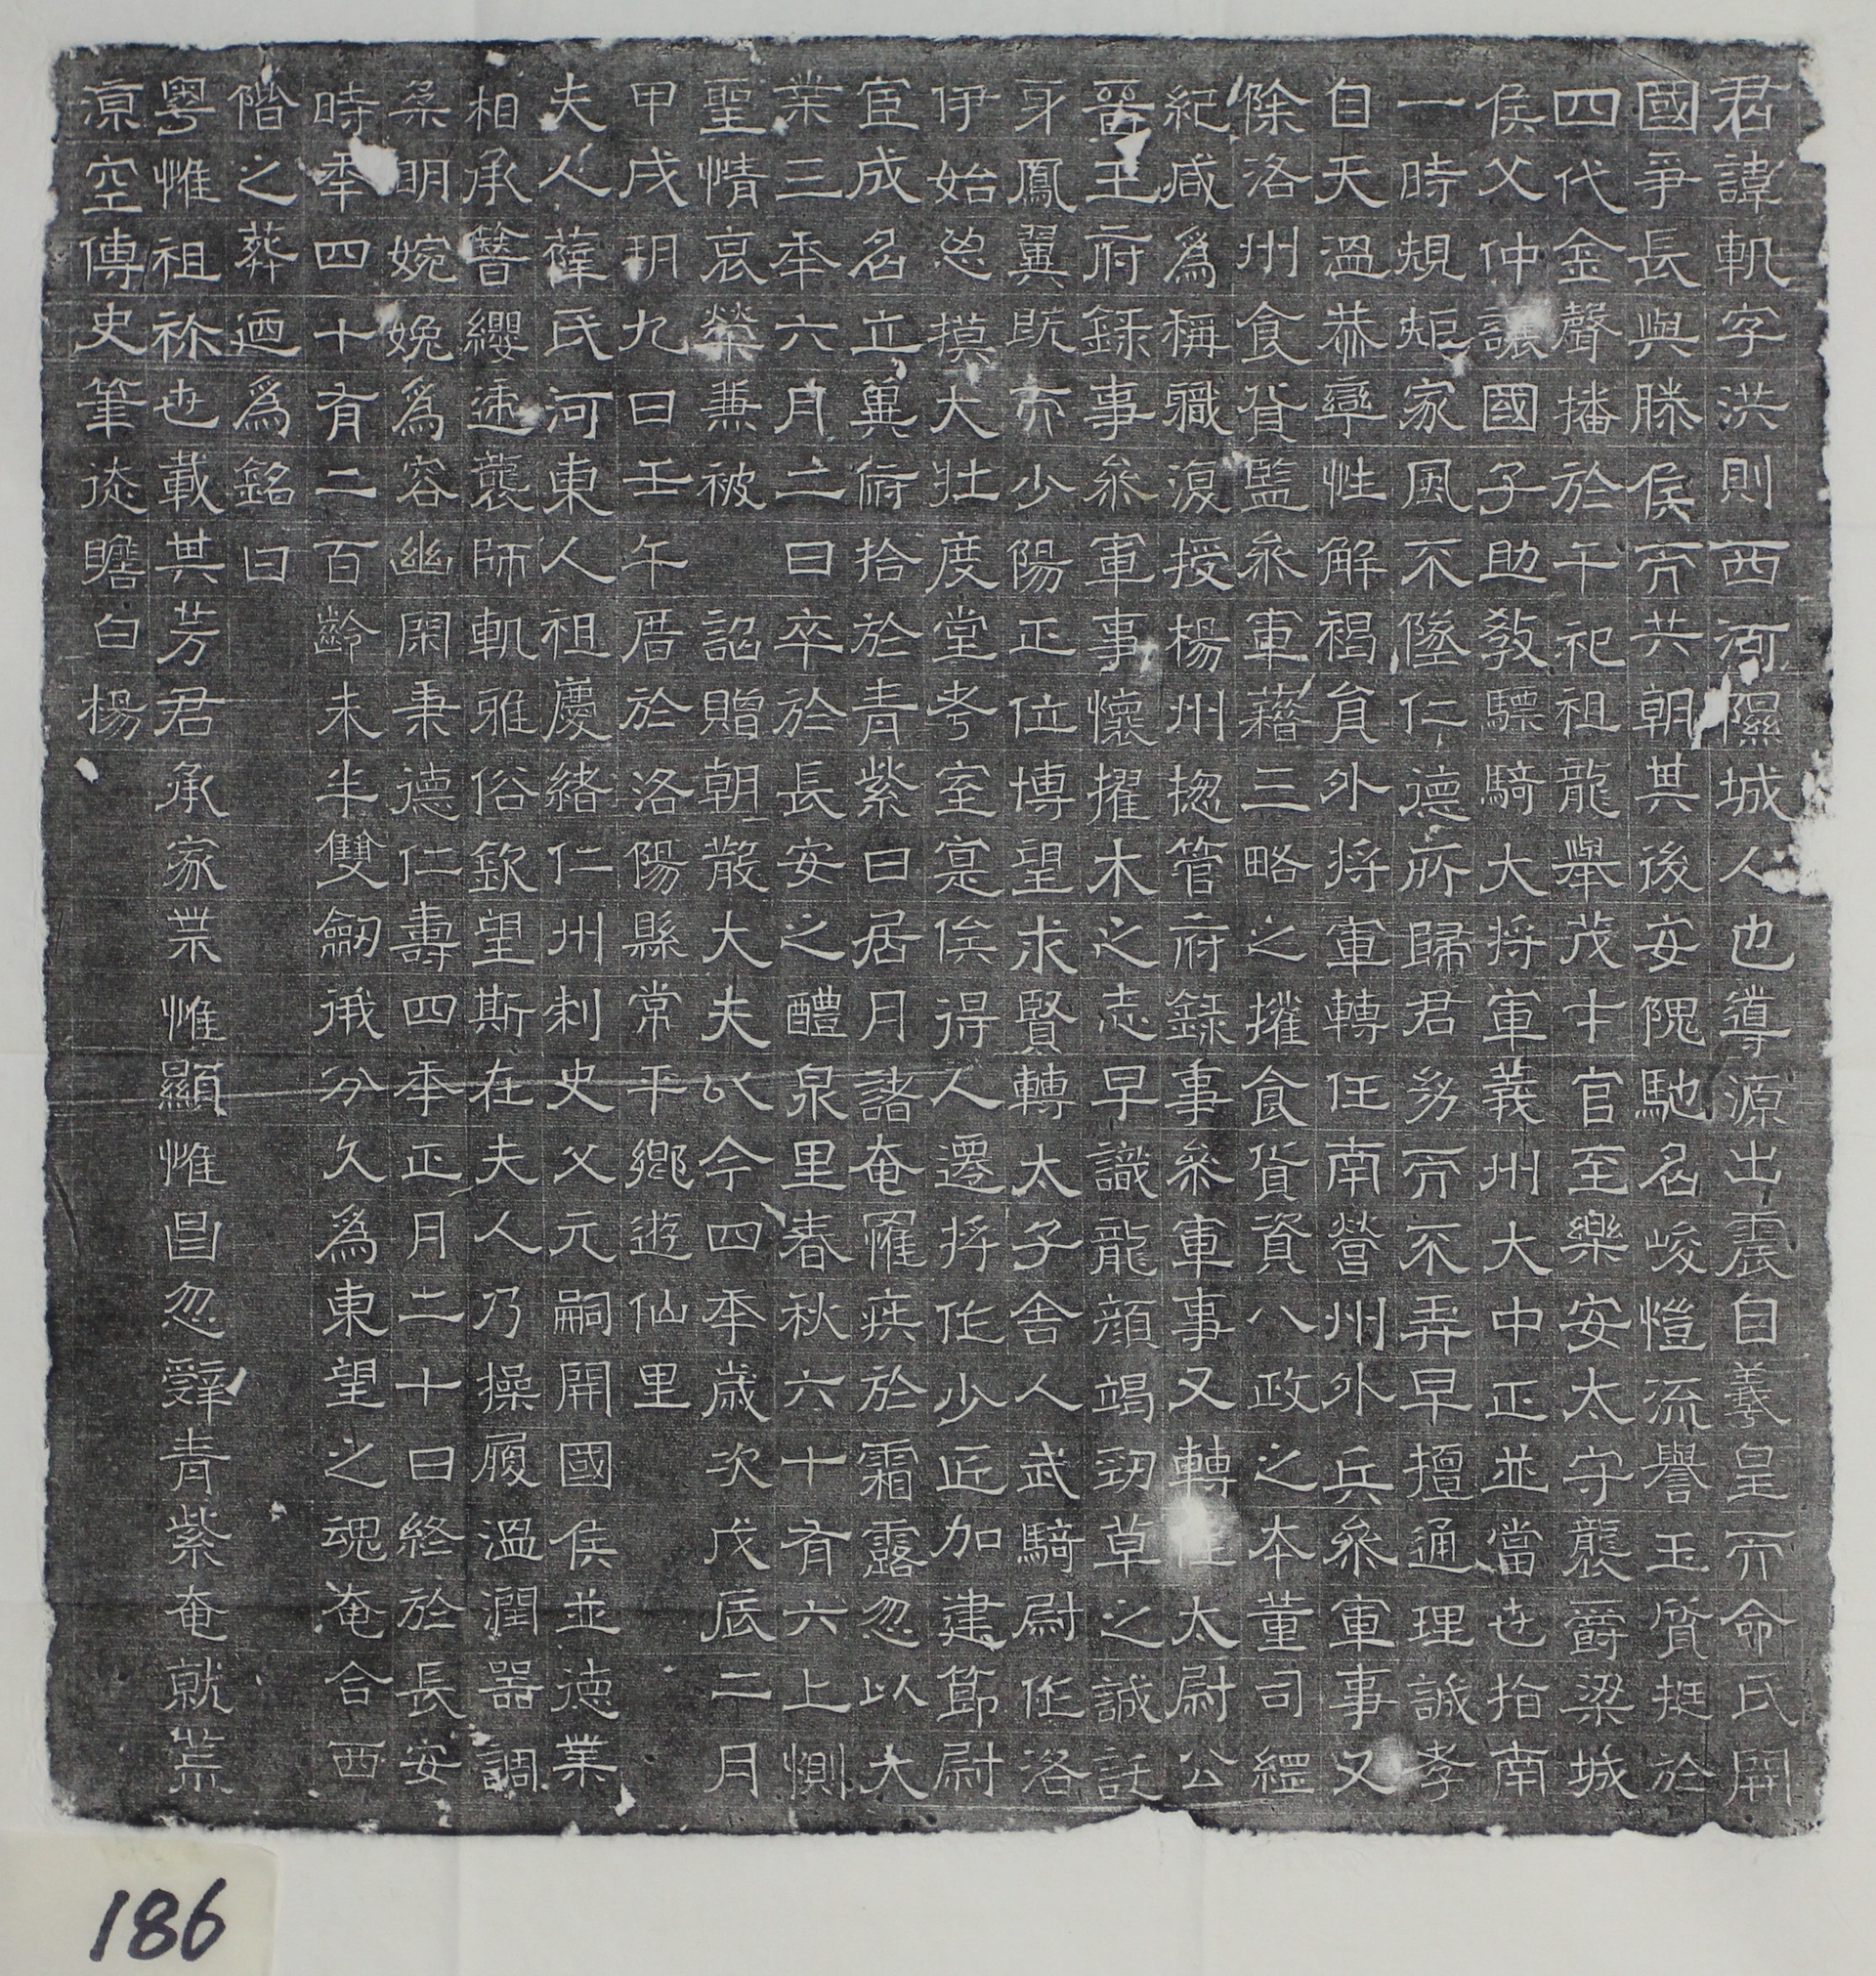 君諱軌字洪則西河隰城人也導源出震自羲皇而命氏開
國爭長與滕侯而共朝其後安隗馳名峻愷流譽玉質挺於
四代金聲播於千祀祖龍舉茂才官至樂安太守襲爵梁城
侯父仲讓國子助教驃騎大將軍義州大中正並當世指南
一時規矩家風不墜仁德所歸君幼而不弄早擅通理誠孝
自天溫恭率性解褐員外將軍轉任南營州外兵參軍事又
除洛州食貨監參軍藉三略之擢食貨資八政之本董司繩
紀咸為稱職復授楊州揔管府錄事參軍事又轉任太尉公
晉王府錄事參軍事懷擢木之志早識龍顏竭勁草之誠託
身鳳翼既而少陽正位博望求賢轉太子舍人武騎尉作洛
伊始恣摸大壯度堂考室寔俟得人遷將作少匠加建節尉
宦成名立冀俯拾於青紫日居月諸奄罹疾於霜露忽以大
業三年六月二日卒於長安之醴泉里春秋六十有六上惻
聖情哀榮兼被 詔贈朝散大夫以今四年歲次戊辰二月
甲戌朔九日壬午厝於洛陽縣常平鄉遊仙里
夫人薛氏河東人祖慶緒仁州刺史父元嗣開國侯並德業
相承簪纓遞襲師軌雅俗欽望斯在夫人乃操履溫潤器調
柔明婉娩為容幽閑秉德仁壽四年正月二十日終於長安
時年四十有二百齡未半雙劒俄分久為東望之魂奄合西
階之葬迺為銘曰
粵惟祖祢世載其芳君承家業惟顯惟昌忽辭青紫奄就荒
涼空傳史筆從瞻白楊
186